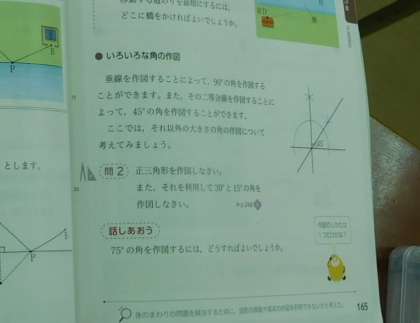 どこに橋をかければよいでしょうか。
● いろいろな角の作図
垂線を作図することによって、90°の角を作図する
ことができます。また、その二等分線を作図することに
よって、45°の角を作図することができます。
ここでは、それ以外の大きさの角の作図について
考えてみましょう。
問2 正三角形を作図しなさい。
また、それを利用して30°と15°の角を
作図しなさい。
話しあおう
75°の角を作図するには、どうすればよいでしょうか。
とします。
P
P
165